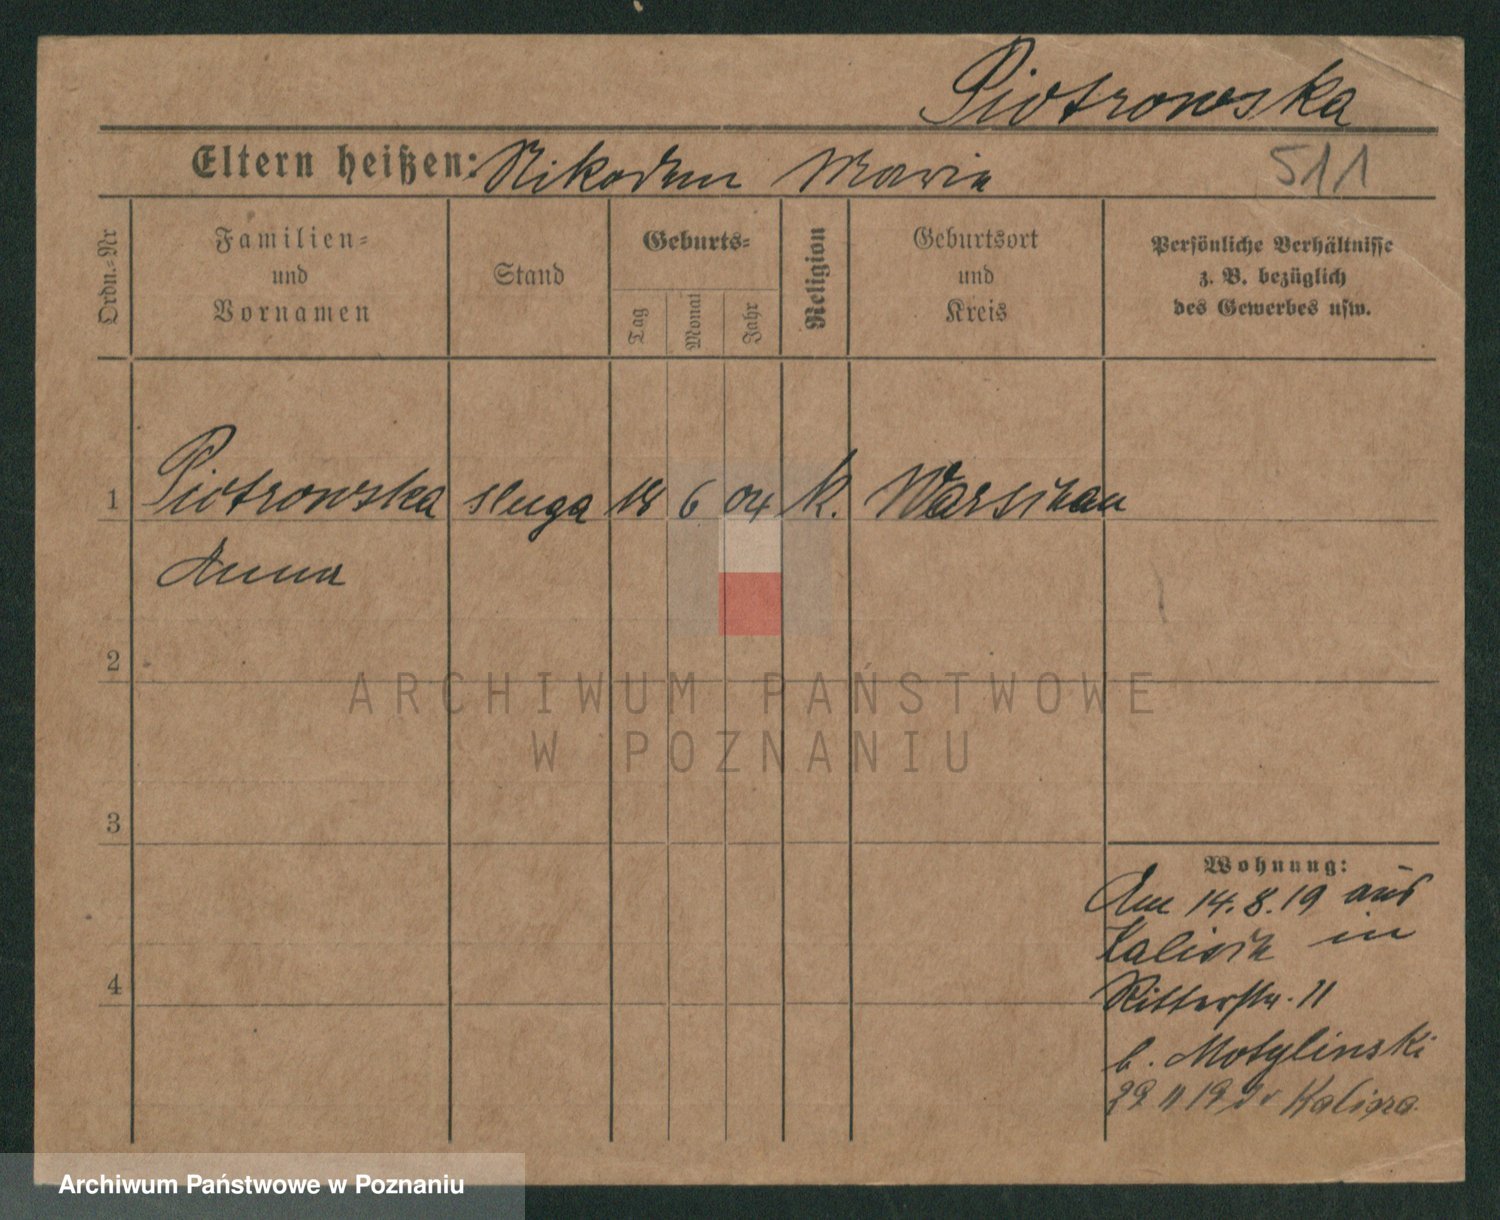 Piotrowska
Eltern heißen: Nikodem Maria
511
Ordn.-Nr
Familien-
und
Vornamen
Stand
Geburts-
Tag
Monat
Jahr
Religion
Geburtsort
und
Kreis
Persönliche Verhältnisse
z. B. bezüglich
des Gewerbes usw.
1 Piotrowska sluga 18 6 04 k. Warschau
Anna
2
ARCHIWUM PAŃSTWOWE
W POZNANIU
3
Wohnung:
Am 14.8.19 aus
Kalisch in
Ritterstr. 11
4
b. Motylinski
29 11 19 Kalisza
Archiwum Państwowe w Poznaniu